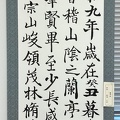 九年歲在癸丑暮
會稽山陰之蘭亭
羣賢畢至少長咸
崇山峻領茂林脩